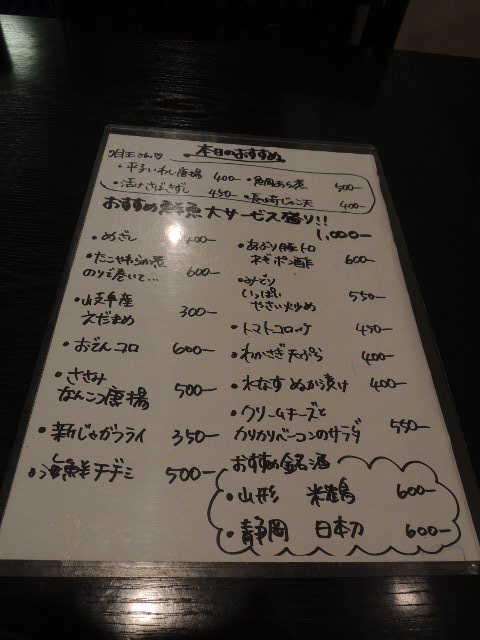 本日のおすすめ
・平子いわし唐揚 400-
・魚岡あら煮 500-
・活〆さばきずし 450-
・長崎じゃこ天 400-
おすすめ鮮魚大サービス盛り!! 1,000-
・めざし 400-
・たこやわらか煮
のりで巻いて... 600-
・山上手産
えだまめ 300-
・おでんコロ 600-
・ささみ
なんこつ唐揚 500-
・新じゃがフライ 350-
・海鮮チヂミ 500-
・あぶり豚トロ
ネギポン酢 600-
・みどり
いっぱい
やさい火炒め 550-
・トマトコロッケ 450-
・わかさぎ天ぷら 400-
・水なすぬか漬け 400-
・クリームチーズと
カリカリベーコンのサラダ 550-
おすすめ銘酒
・山形 米鶴 600-
・静岡 日本刀 600-